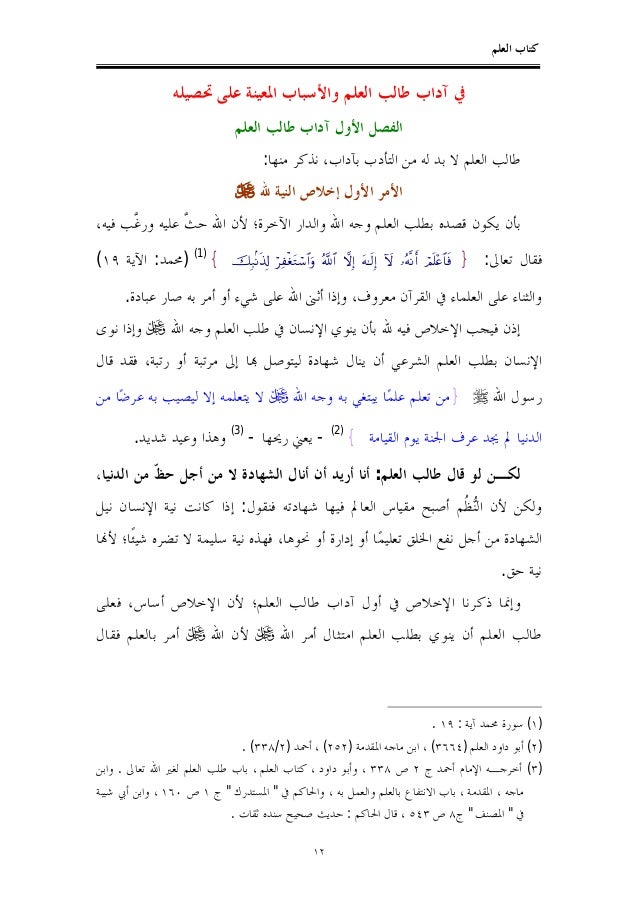 كتاب العلم
في آداب طالب العلم والأسباب المعينة على تحصيله
الفصل الأول آداب طالب العلم
طالب العلم لا بد له من التأدب بآداب، نذكر منها:
الأمر الأول إخلاص النية لله ﷻ
بأن يكون قصده بطلب العلم وجه الله والدار الآخرة؛ لأن الله حثَّ عليه ورغَّب فيه،
فقال تعالى: { فَٱعْلَمْ أَنَّهُۥ لَآ إِلَـٰهَ إِلَّا ٱللَّهُ وَٱسْتَغْفِرْ لِذَنۢبِكَ } (1) (محمد: الآية ١٩)
والثناء على العلماء في القرآن معروف، وإذا أثنى الله على شيء أو أمر به صار عبادة.
إذن فيجب الإخلاص فيه لله بأن ينوي الإنسان في طلب العلم وجه الله ﷻ وإذا نوى
الإنسان بطلب العلم الشرعي أن ينال شهادة ليتوصل بها إلى مرتبة أو رتبة، فقد قال
رسول الله ﷺ {من تعلم علمًا يبتغي به وجه الله ﷻ لا يتعلمه إلا ليصيب به عرضًا من
الدنيا لم يجد عرف الجنة يوم القيامة } (2) - يعني ريحها - (3) وهذا وعيد شديد.
لكـــن لو قال طالب العلم: أنا أريد أن أنال الشهادة لا من أجل حظّ من الدنيا،
ولكن لأن النُّظُم أصبح مقياس العالم فيها شهادته فنقول: إذا كانت نية الإنسان نيل
الشهادة من أجل نفع الخلق تعليمًا أو إدارة أو نحوها، فهذه نية سليمة لا تضره شيئًا؛ لأنها
نية حق.
وإنما ذكرنا الإخلاص في أول آداب طالب العلم؛ لأن الإخلاص أساس، فعلى
طالب العلم أن ينوي بطلب العلم امتثال أمر الله ﷻ لأن الله ﷻ أمر بالعلم فقال
(١) سورة محمد آية : ١٩ .
(٢) أبو داود العلم (٣٦٦٤) ، ابن ماجه المقدمة (٢٥٢) ، أحمد (٣٣٨/٢) .
(٣) أخرجـــه الإمام أحمد ج ٢ ص ٣٣٨ ، وأبو داود ، كتاب العلم ، باب طلب العلم لغير الله تعالى . وابن
ماجه ، المقدمة ، باب الانتفاع بالعلم والعمل به ، والحاكم في " المستدرك " ج ١ ص ١٦٠ ، وابن أبي شيبة
في " المصنف " ج٨ ص ٥٤٣ ، قال الحاكم : حديث صحيح سنده ثقات .
١٢